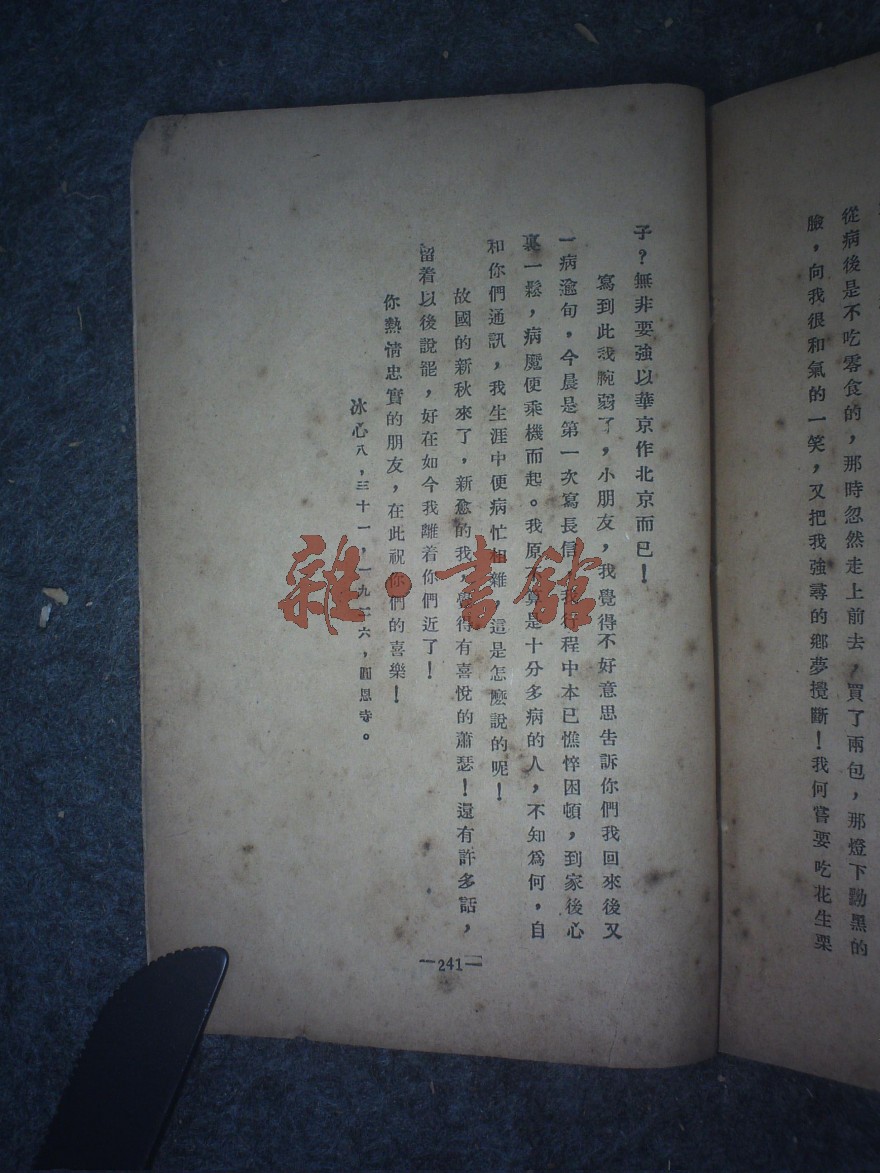 從病後是不吃零食的,那時忽然走上前去,買了兩包,那燈下黝黑的
臉,向我很和氣的一笑,又把我強尋的鄉夢攪斷!我何嘗要吃花生栗
子?無非要強以華京作北京而已!
寫到此我腕弱了,小朋友,我覺得不好意思告訴你們我回來後又
一病逾旬,今晨是第一次寫長信。我行程中本已憔悴困頓,到家後心
裏一鬆,病魔便乘機而起。我原不算是十分多病的人,不知爲何,自
和你們通訊,我生涯中便病忙相雜,這是怎麼說的呢!
故國的新秋來了,新愈的我,覺得有喜悅的蕭瑟!還有許多話,
留着以後說罷,好在如今我離着你們近了!
你熱情忠實的朋友,在此祝你們的喜樂!
冰心八,三十一,一九二六,圓恩寺。
—241—
雜·書館